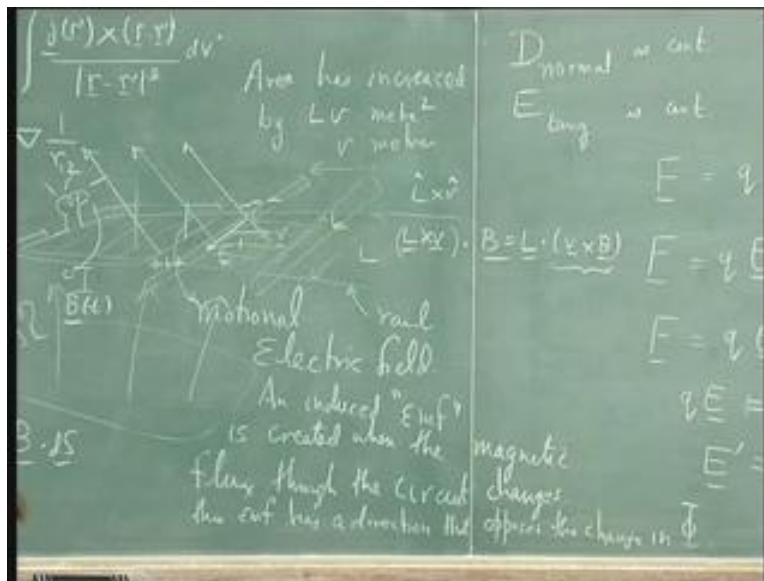 ∫ j(r') × (r - r') / |r - r'|³ dv'
∇ 1/r₂
B(t)
B · dS
Area has increased
by Lv metre²
L̂ × v̂
L
(L × v) · B = L · (v × B)
motional
Electric field
An induced "Emf"
is created when the magnetic
flux through the circuit changes
this emf has a direction that opposes the change in Φ
D normal is cont
E tang is cont
E = q
F = q E
F = q
qE =
E' =